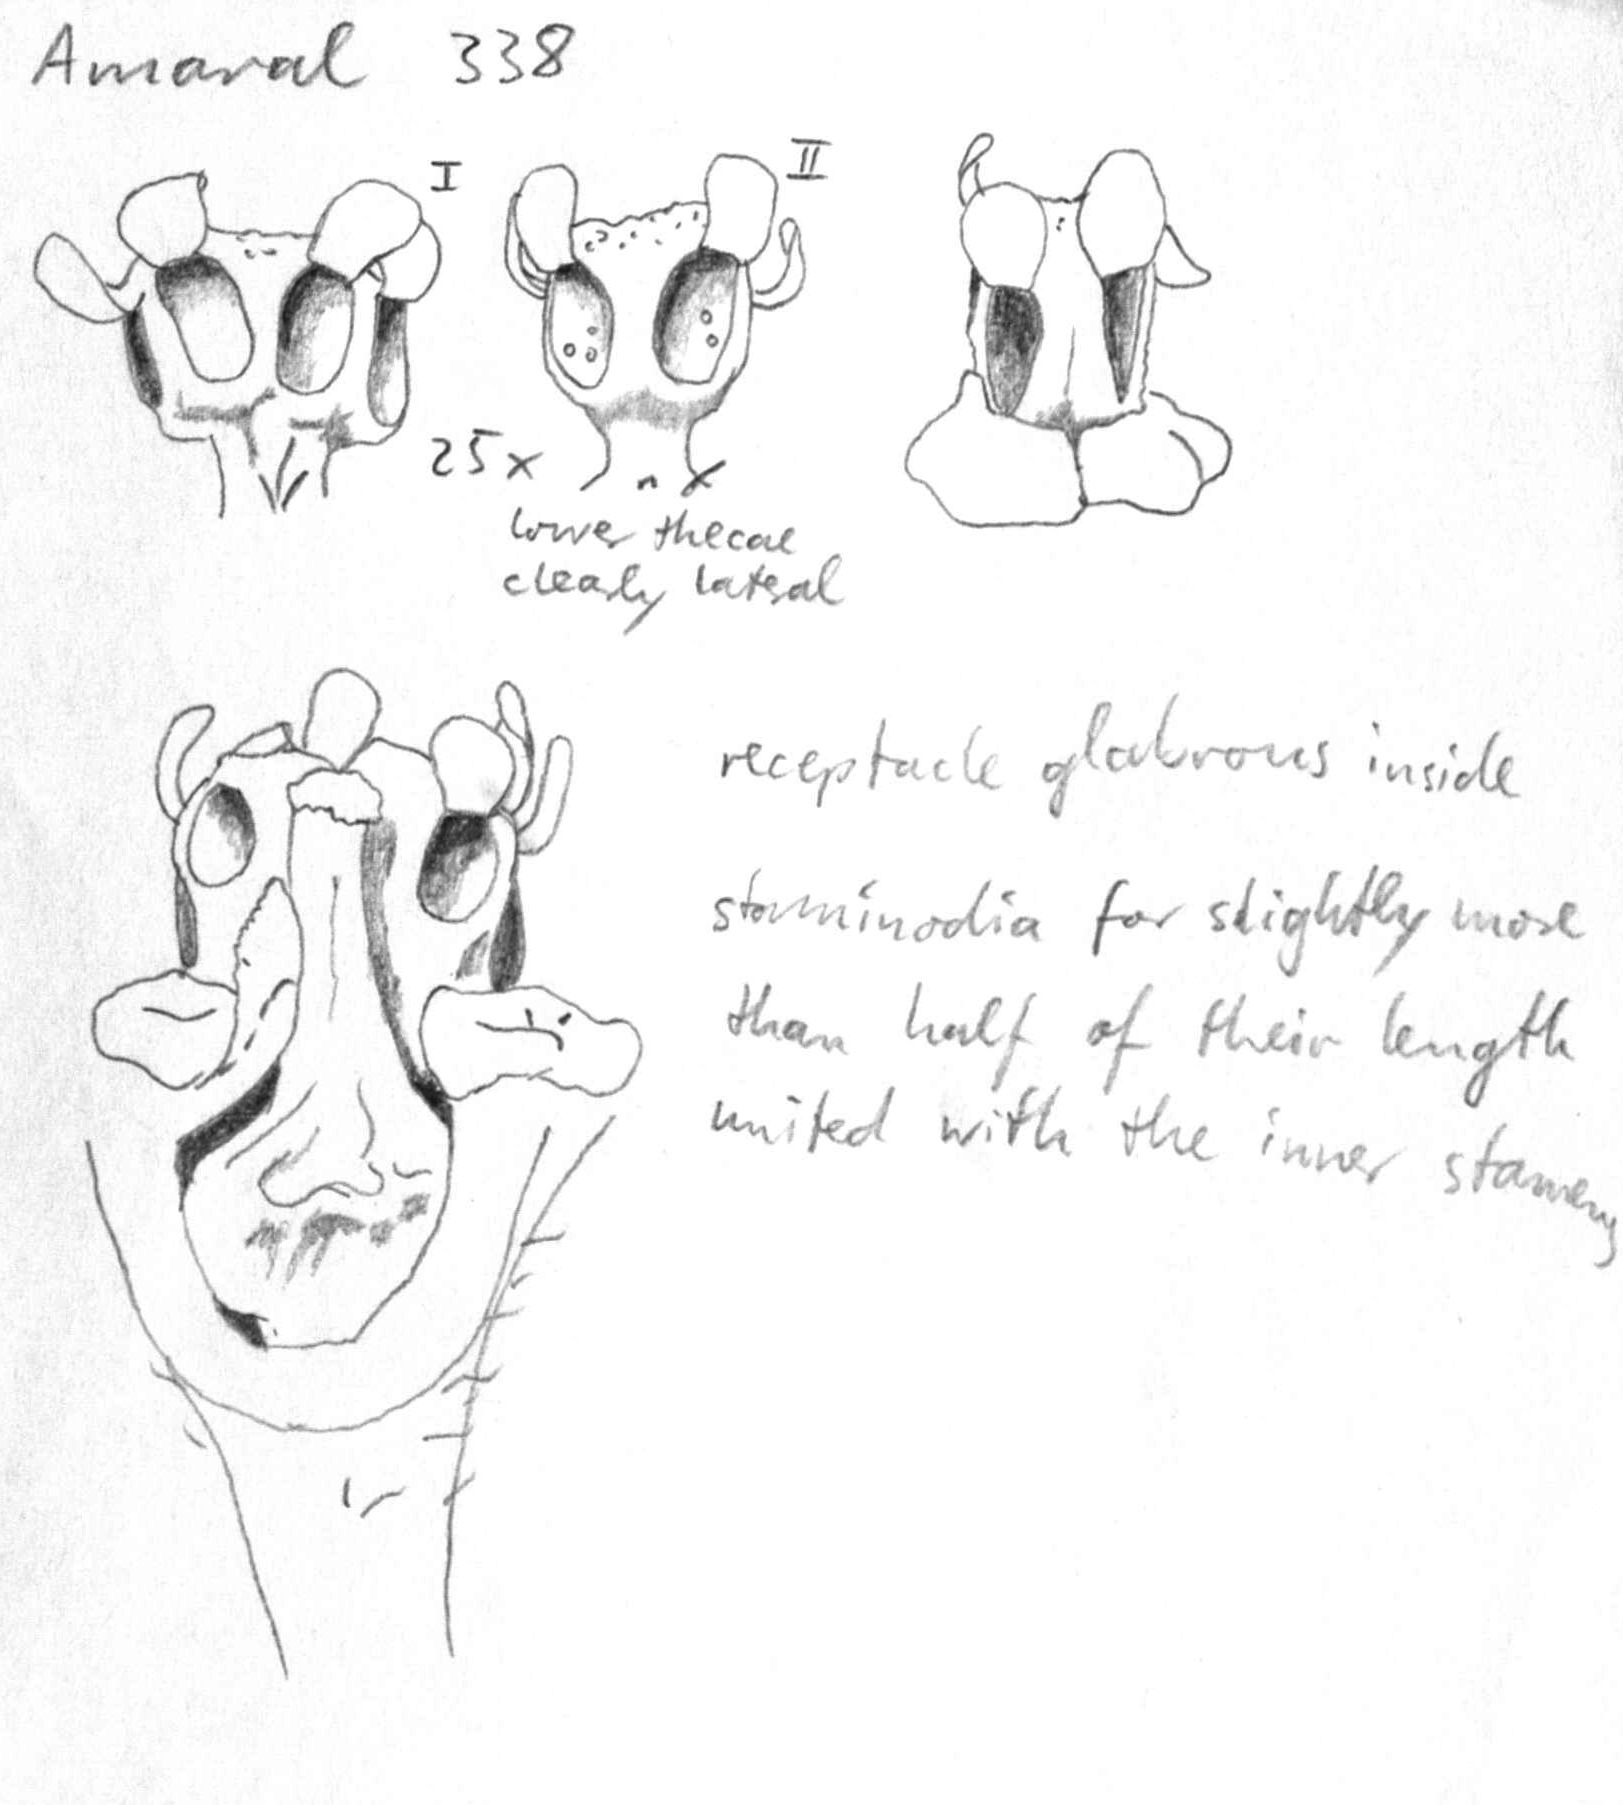 Amaral 338
I
II
25x
lower thecae
clearly lateral
receptacle glabrous inside
staminodia for slightly more
than half of their length
united with the inner stamens